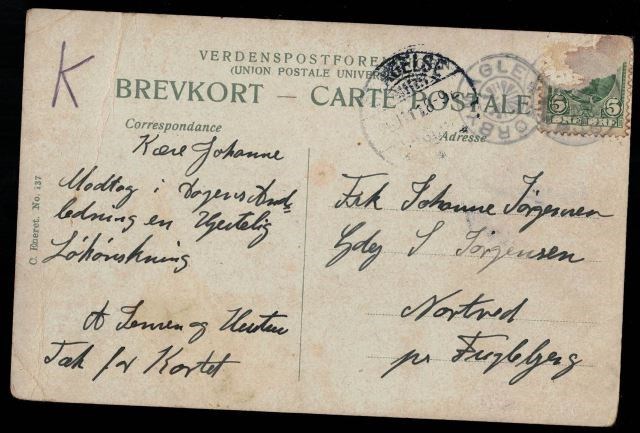 K
VERDENSPOSTFORE
(UNION POSTALE UNIVER
BREVKORT — CARTE POSTALE
Correspondance
Adresse
GELSE
5 5
C. Eneret. No. 137
Kære Johanne
Modtag i Dagens And=
ledning en Hjertelig
Lykønskning
og
Tak for Kortet
Frk Johanne Jørgensen
Gdej S Jørgensen
Nortved
pr Fuglebjerg